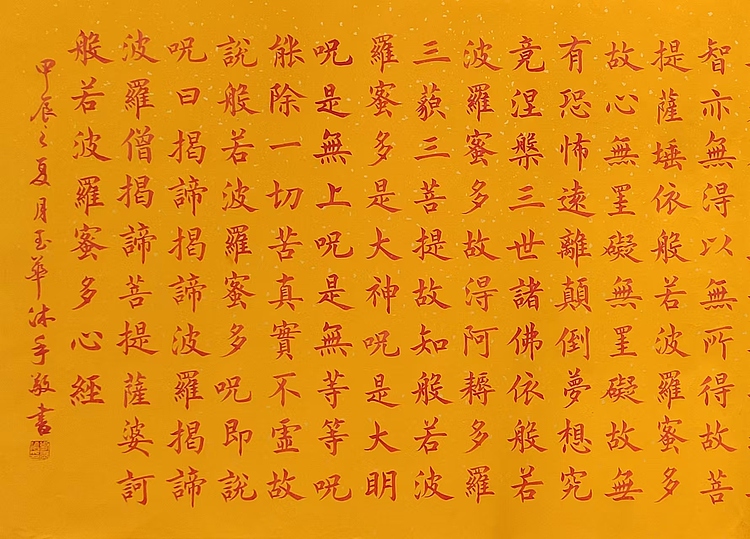 智亦無得以無所得故菩
提薩埵依般若波羅蜜多
故心無罣礙無罣礙故無
有恐怖遠離顛倒夢想究
竟涅槃三世諸佛依般若
波羅蜜多故得阿耨多羅
三藐三菩提故知般若波
羅蜜多是大神呪是大明
呪是無上呪是無等等呪
能除一切苦真實不虛故
說般若波羅蜜多呪即說
呪曰揭諦揭諦波羅揭諦
波羅僧揭諦菩提薩婆訶
般若波羅蜜多心經
甲辰之夏月玉華沐手敬書